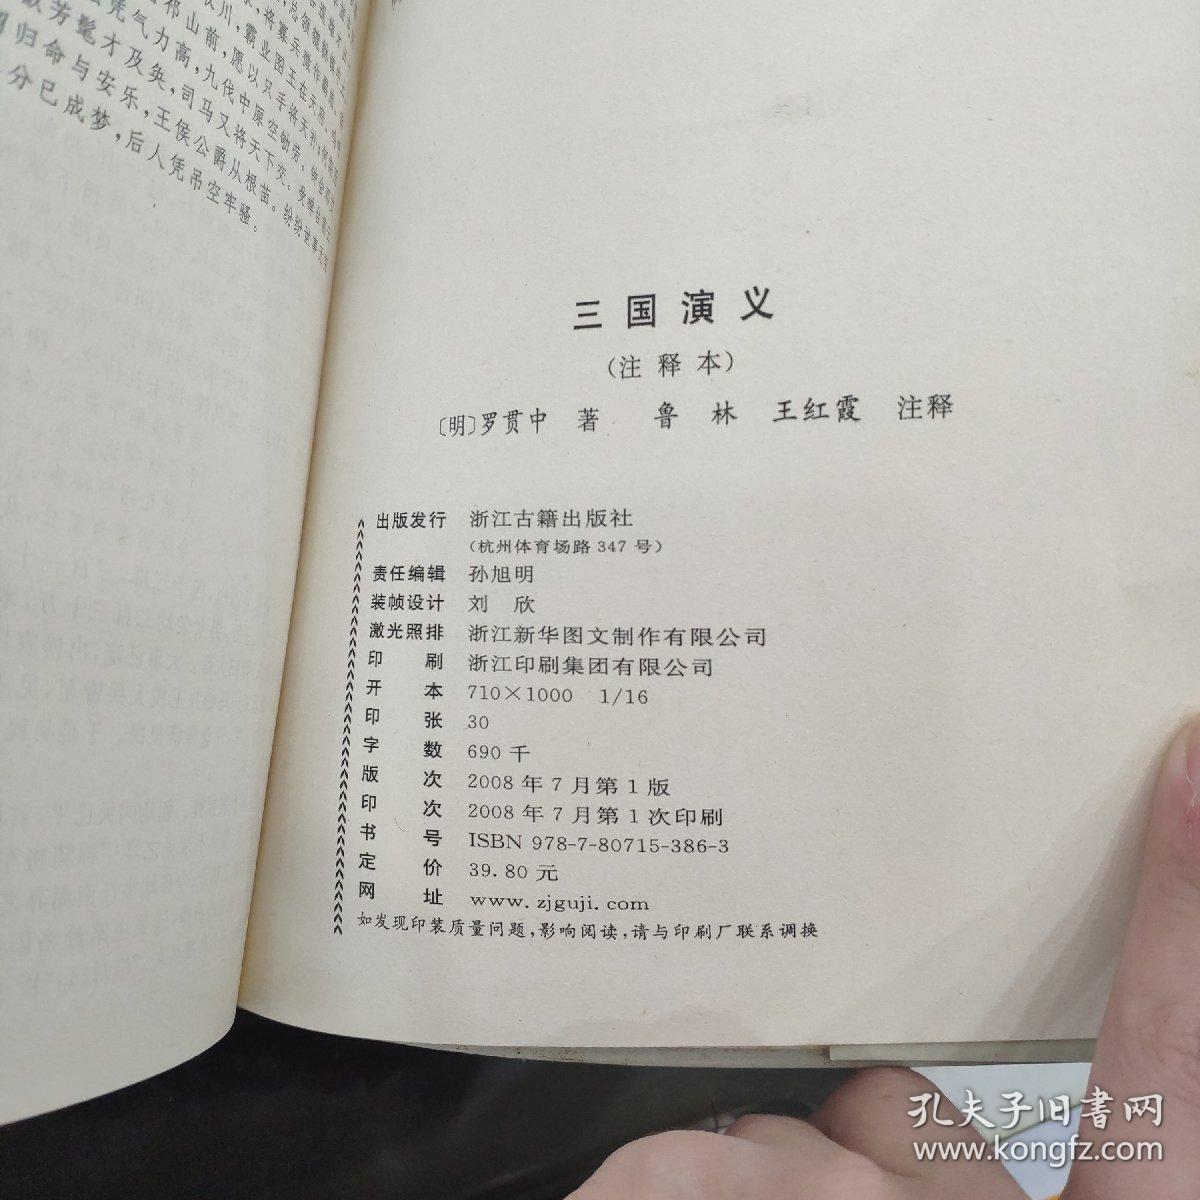 将寡兵微作羁旅
霸业图王在天府
祁山前,愿以只手将天补
凭气力高,九伐中原空劬劳
芳髦才及奂,司马又将天下交。受禅台前
归命与安乐,王侯公爵从根苗。纷纷世事无
分已成梦,后人凭吊空牢骚。
三国演义
(注释本)
〔明〕罗贯中 著 鲁林 王红霞 注释
出版发行 浙江古籍出版社
(杭州体育场路 347 号)
责任编辑 孙旭明
装帧设计 刘欣
激光照排 浙江新华图文制作有限公司
印刷 浙江印刷集团有限公司
开本 710×1000 1/16
印张 30
字数 690 千
版次 2008 年 7 月第 1 版
印次 2008 年 7 月第 1 次印刷
书号 ISBN 978-7-80715-386-3
定价 39.80 元
网址 www.zjguji.com
如发现印装质量问题,影响阅读,请与印刷厂联系调换
孔夫子旧书网
www.kongfz.com